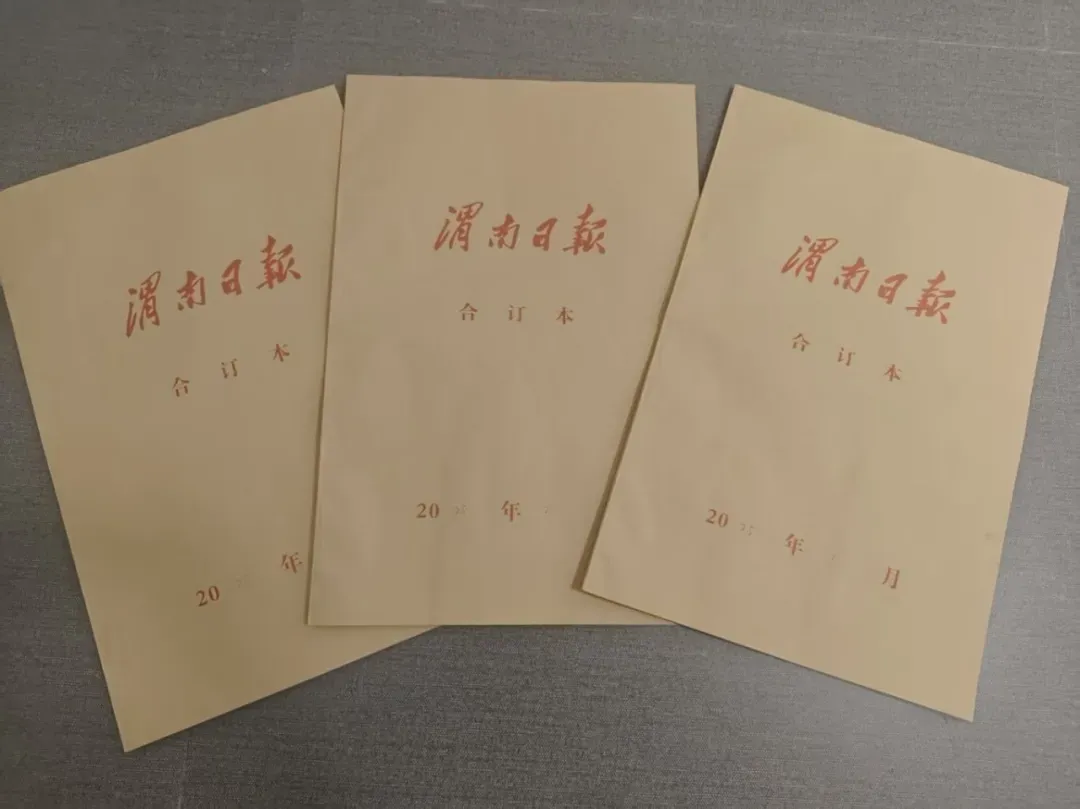 渭南日报
合订本
20 年
渭南日报
合订本
20 年
渭南日报
合订本
20 年 月